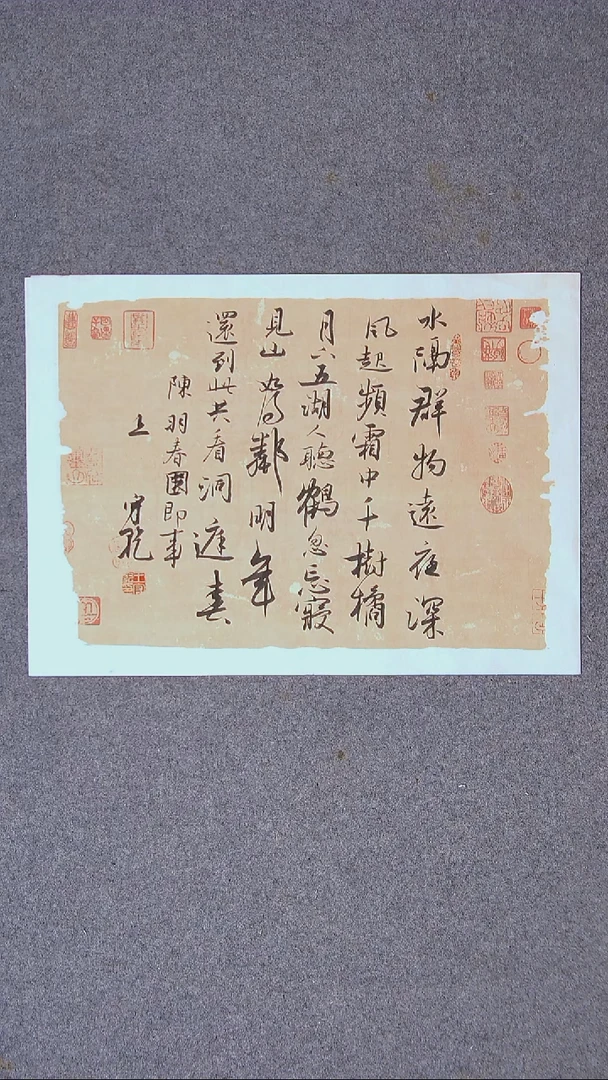 水隔群物遠夜深
風起頻霜中千樹橘
月下五湖人聽鶴忽忘寢
見山如得鄰明年
還到此共看洞庭春
陳羽春園即事
上